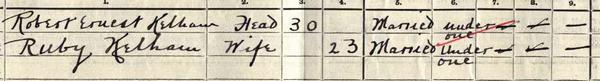 1. 2. 3. 4. 5. 6. 7. 8. 9.
Robert Ernest Kelham Head 30 Married under one
Ruby Kelham Wife 23 Married under one